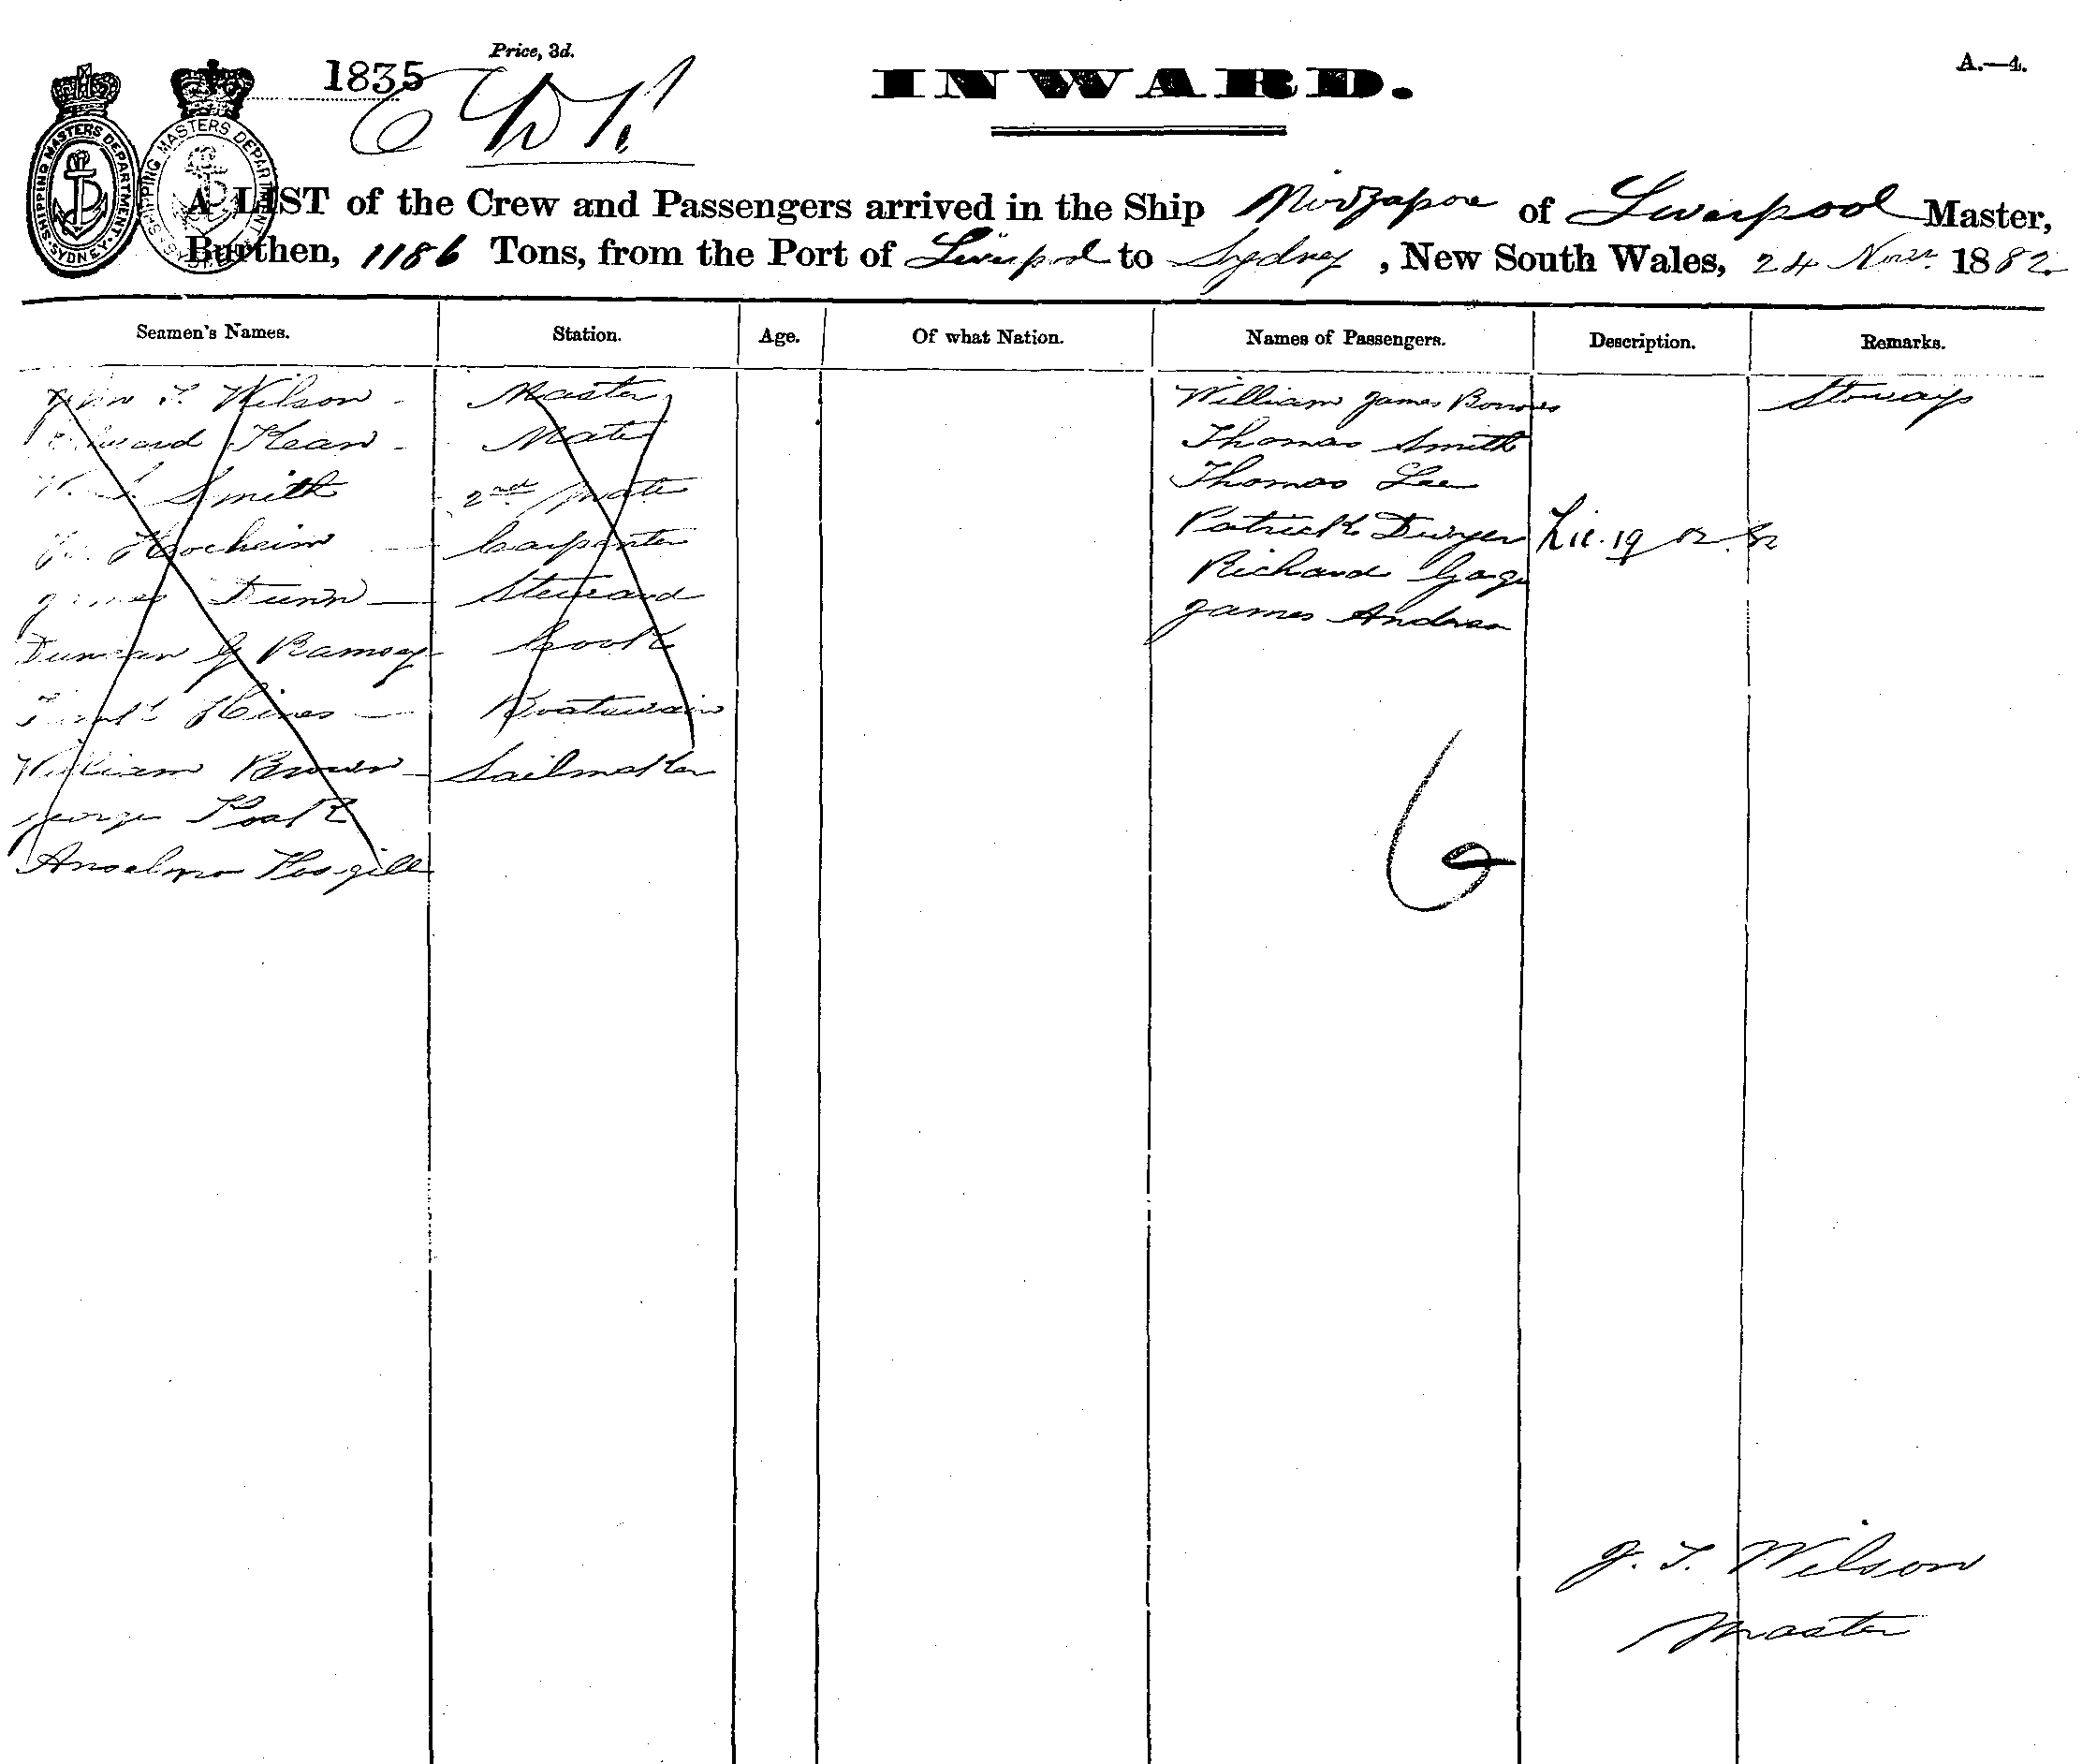 Price, 3d.
1835
INWARD.
A.—4.
SHIPPING MASTERS DEPARTMENT
SYDNEY
SHIPPING MASTERS DEPARTMENT
A LIST of the Crew and Passengers arrived in the Ship Mirzapore of Liverpool Master,
Burthen, 1186 Tons, from the Port of Liverpool to Sydney, New South Wales, 24 Novr. 1882
Seamen's Names. Station. Age. Of what Nation. Names of Passengers. Description. Remarks.
Wilson Master William James Stoways
Edward Kean Mate Thomas Smith
Smith 2nd Mate Thomas Lee
Carpenter Patrick Dwyer
James Dunn Steward Richard
Duncan G Ramsay Cook James
Frank Hines Boatswain
William Brown Sailmaker
George
Anselmo
6
J. T. Wilson
Master